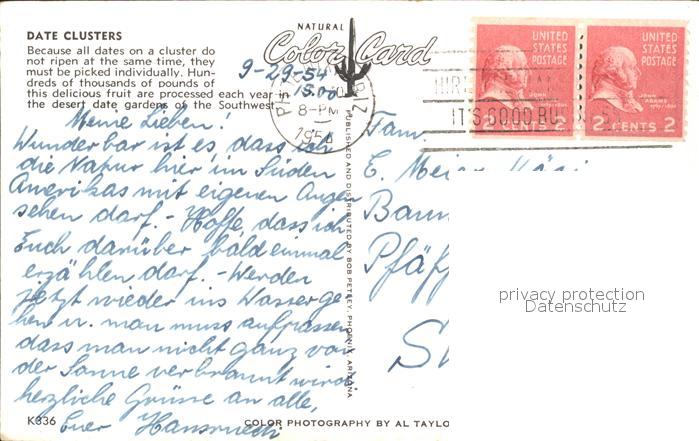 DATE CLUSTERS
Because all dates on a cluster do
not ripen at the same time, they
must be picked individually. Hun-
dreds of thousands of pounds of
this delicious fruit are processed each year in
the desert date gardens of the Southwest.
NATURAL
Color Card
9-29-54
15.00
8-PM
1954
UNITED
STATES
POSTAGE
JOHN
ADAMS
2 CENTS 2
UNITED
STATES
POSTAGE
JOHN
ADAMS
2 CENTS 2
HIRE
IT'S GOOD BU
Meine Lieben!
Wunderbar ist es, dass ich
die Natur hier im Süden
Amerikas mit eigenen Augen
sehen darf. - Hoffe, dass ich
Euch darüber bald einmal
erzählen darf. - Werden
jetzt wieder ins Wasser ge-
hen u. man muss aufpassen
dass man nicht ganz von
der Sonne verbrannt wird
herzliche Grüsse an alle,
Euer Hansruedi
PUBLISHED AND DISTRIBUTED BY BOB PETLEY, PHOENIX, ARIZONA
Fam.
E. Meier
Pfäff
privacy protection
Datenschutz
K336
COLOR PHOTOGRAPHY BY AL TAYLO